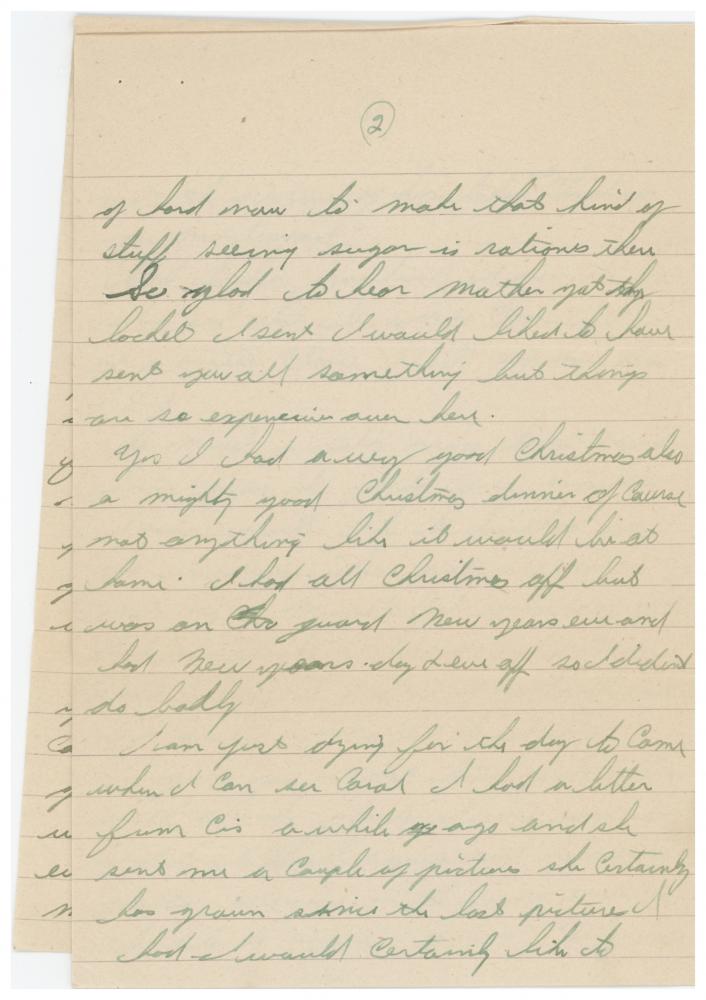 2
of hard now to make that kind of
stuff seeing sugar is rations there
So glad to hear mother got the
locket I sent I would liked to have
sent you all something but things
are so expensive over here.
Yes I had a very good Christmas also
a mighty good Christmas dinner of course
not anything like it would be at
home. I had all Christmas off but
was on guard New years eve and
had New years day & eve off so I didint
do badly
I am just dying for the day to come
when I can see Carol I had a letter
from Cis a while ago and she
sent me a couple of pictures she certainly
has grown since the last picture I
had I would certainly like to